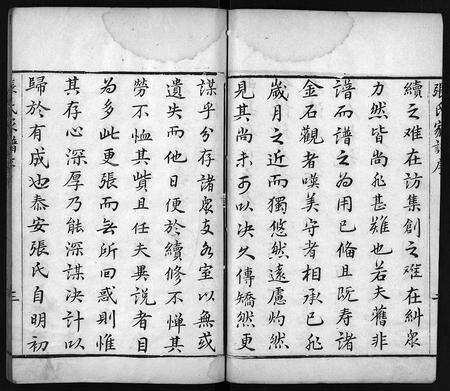 張氏家譜序
續之难在訪集創之难在糾衆
力然皆尚非甚難也若夫舊非
譜而譜之為用已俻且既寿諸
金石觀者嘆美守者相承已非
歲月之近而獨悠然遠慮灼然
見其尚未可以决久傳矯然更
謀乎分存諸衆支各室以無或
遺失而他日便於續修不惮其
勞不恤其貲且任夫異說者目
為多此更張而無所囘惑則惟
其存心深厚乃能深謀决計以
歸於有成也泰安張氏自明初
三